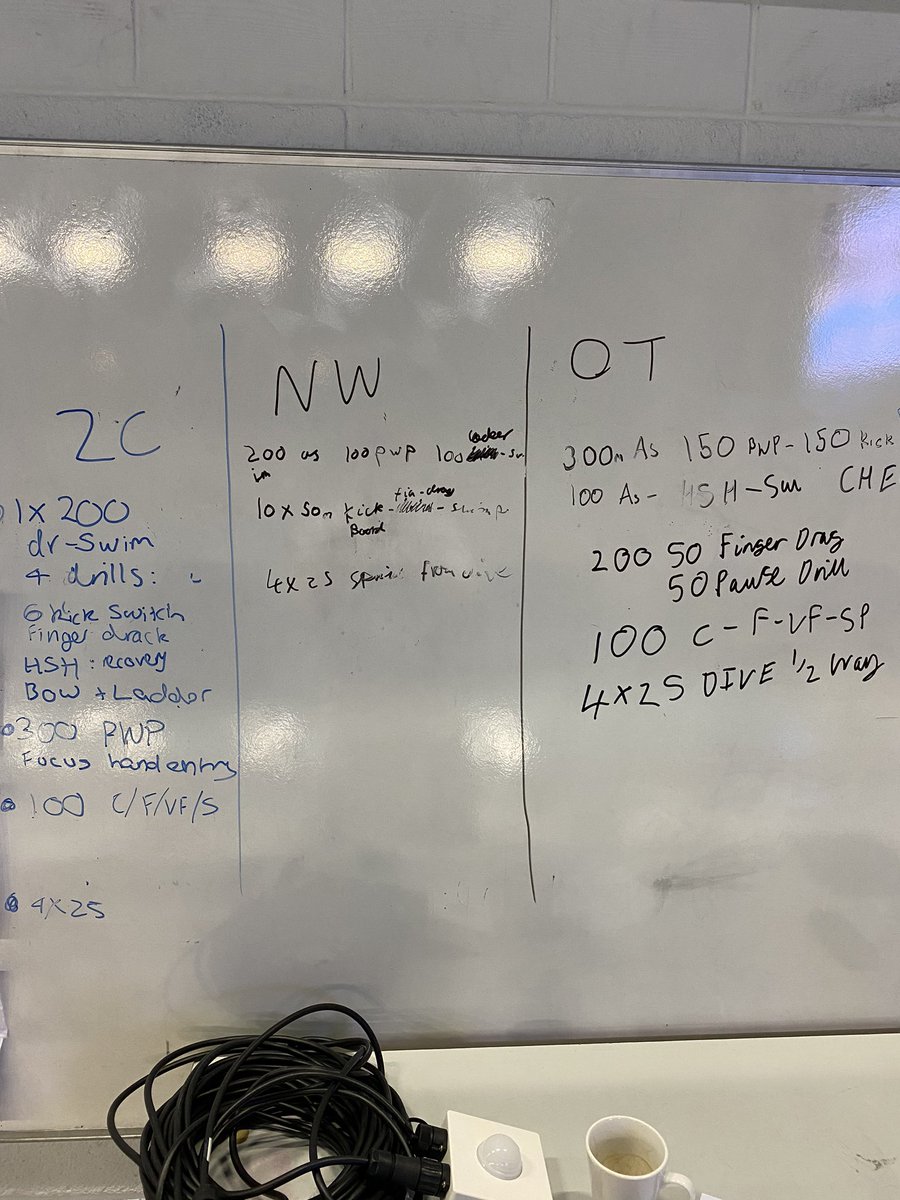 ZC
1x200
dr-Swim
4 drills:
6 Kick Switch
Finger drack
HSH: recovery
Bow + Ladder
300 PWP
Focus hand entry
100 C/F/VF/S
4x25
NW
200 as 100 pwp 100
10 x 50m kick -
Board
4x25 sprint from dive
OT
300m As 150 PWP-150 Kick
100 As- HSH-Sw CHE
200 50 Finger Drag
50 Pause Drill
100 C-F-VF-SP
4x25 DIVE 1/2 way